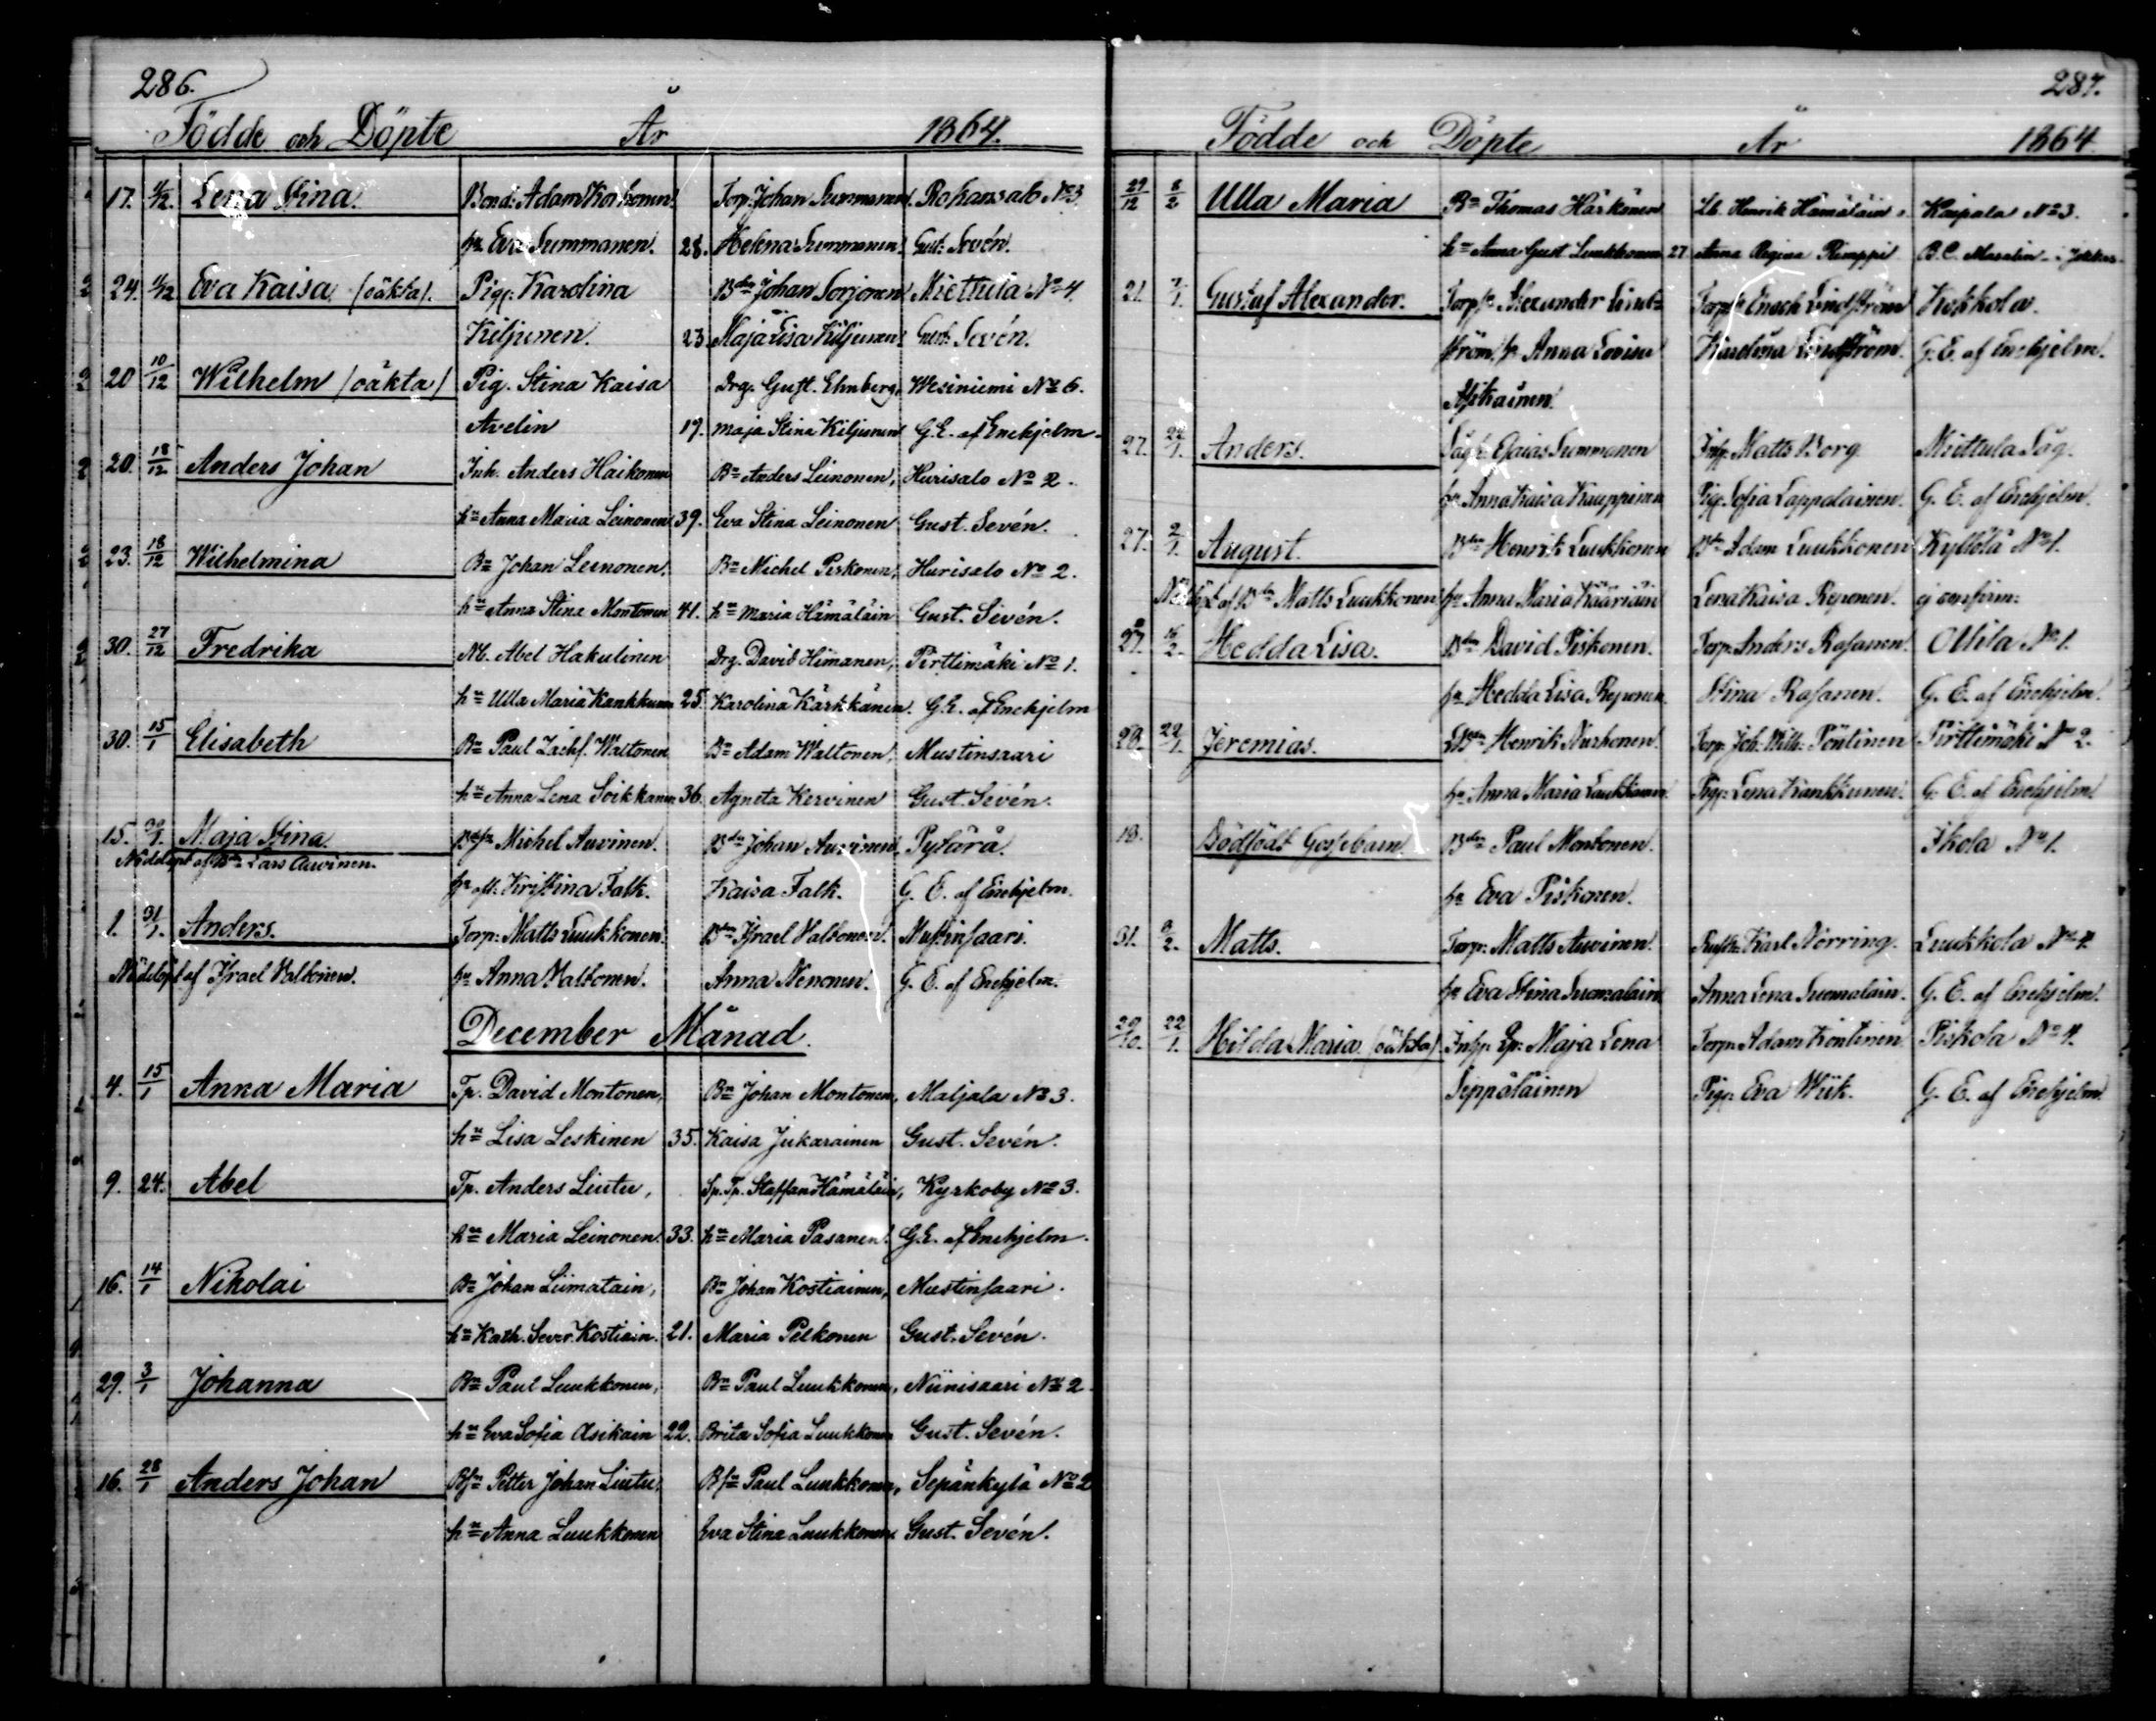 286.
Födde och Döpte År 1864.
17. 4/12. Lena Stina. Bond: Adam Korhonen Torp: Johan Summanen Rohansalo No 3
hu Eva Summanen. 28. Helena Summanen Gust: Sevén.
24. 4/12 Eva Kaisa (oäkta). Pig: Karolina Bdn Johan Sorjonen Miettula No 4.
Kiljunen. 23 Maja Lisa Kiljunen Gust: Sevén.
20 10/12 Wilhelm (oäkta) Pig. Stina Kaisa Drg. Gust. Ehnberg, Wesiniemi No 6.
Avelin 19. Maja Stina Kiljunen G.E. af Enehjelm.
20. 18/12 Anders Johan Inh. Anders Haikonen Bn Anders Leinonen, Hurisalo No 2.
hn Anna Maria Leinonen 39. Eva Stina Leinonen Gust. Sevén.
23. 18/12 Wilhelmina Bn Johan Leinonen, Bn Michel Piskonen, Hurisalo No 2.
hn Anna Stina Montonen 41. hn Maria Hämäläin Gust. Sevén.
30. 27/12 Fredrika Nb. Abel Hakulinen Drg. David Himanen, Pirttimäki No 1.
hn Ulla Maria Kankkunen 25. Karolina Kärkkänen. G.E. af Enehjelm
30. 15/1 Elisabeth Bn Paul Zachf. Waltonen Bn Adam Waltonen, Mustinsaari
hn Anna Lena Soikkanen 36. Agneta Kervinen Gust. Sevén.
15. 29/1. Maja Stina. Michel Auvinen. Bdn Johan Auvinen Pylärä.
Nöddöpt af Bdn Lars Auvinen.
hu Kristina Falk. Kaisa Falk. G. E. af Enehjelm.
1. 31/1. Anders. Torp: Matts Luukkonen. Bdn Israel Valtonen. Mustinsaari.
Nöddöpt af Israel Valtonen. hu Anna Valtonen. Anna Nenonen. G. E. af Enehjelm.
December Månad.
4. 15/1 Anna Maria Tp. David Montonen, Bn Johan Montonen, Maljala No 3.
hn Lisa Leskinen 35. Kaisa Jukarainen Gust. Sevén.
9. 24. Abel Tp. Anders Liutu, Sp. Tp. Staffan Hämäläin, Kyrkoby No 3.
hn Maria Leinonen. 33. hn Maria Pasanen. G.E. af Enehjelm.
16. 14/1 Nikolai Bn Johan Liimatain, Bn Johan Kostiainen, Mustinsaari.
hn Kath. Sever. Kostiain. 21. Maria Pelkonen Gust. Sevén.
29. 3/1 Johanna Bn Paul Luukkonen, Bn Paul Luukkonen, Niinisaari No 2.
hn Eva Sofia Asikain 22. Brita Sofia Luukkonen Gust. Sevén.
16. 28/1 Anders Johan Bsn Petter Johan Liutu, Bsn Paul Luukkonen, Sepänkylä No 2
hn Anna Luukkonen Eva Stina Luukkonen Gust. Sevén.
287.
Födde och Döpte År 1864
29/12 8/2 Ulla Maria Bn Thomas Härkönen Lb. Henrik Hämäläin, Kaipala No 3.
hn Anna Gust Luukkonen 27 Anna Regina Rimppi B.C. Masalin i Jokkas
21. 7/1. Gustaf Alexander. Torp Alexander Lind= Torp: Enoch Lindström Kokkola.
ström, hu Anna Lovisa Karolina Lindström. G. E. af Enehjelm.
Asikainen.
27. 22/1. Anders. Esaias Summanen Inh: Matts Borg Miettula Såg.
hu Anna Kaisa Kauppinen Pig: Sofia Lappalainen. G. E. af Enehjelm.
27. 2/1. August. Bdn Henrik Luukkonen Bdn Adam Luukkonen Kyllölä No 1.
Nöddöpt af Bdn Matts Luukkonen hu Anna Maria Kääriäin Lena Kaisa Reponen. ej confirm:
27. 16/2. Hedda Lisa. Bdn David Piskonen. Torp: Anders Rasanen. Ollila No 1.
hu Hedda Lisa Reponen Stina Rasanen. G. E. af Enehjelm.
28. 29/1. Jeremias. Henrik Nuthonen. Torp: Joh: Wilh: Pöntinen Pirttimäki No 2.
hu Anna Maria Luukkonen. Pig: Lena Kankkunen. G. E. af Enehjelm.
18. Dödfödt Gossebarn. Bdn Paul Montonen. Ikola No 1.
hu Eva Piskonen.
31. 9/2. Matts. Torp: Matts Auvinen. Karl Nörring. Luukkola No 4.
hu Eva Stina Suomalain. Anna Lena Suomalain. G. E. af Enehjelm.
29/10. 22/1. Hilda Maria (oäkta) Maja Lena Torp: Adam Kontinen Piskola No 4.
Seppäläinen Pig: Eva Wiik. G. E. af Enehjelm.